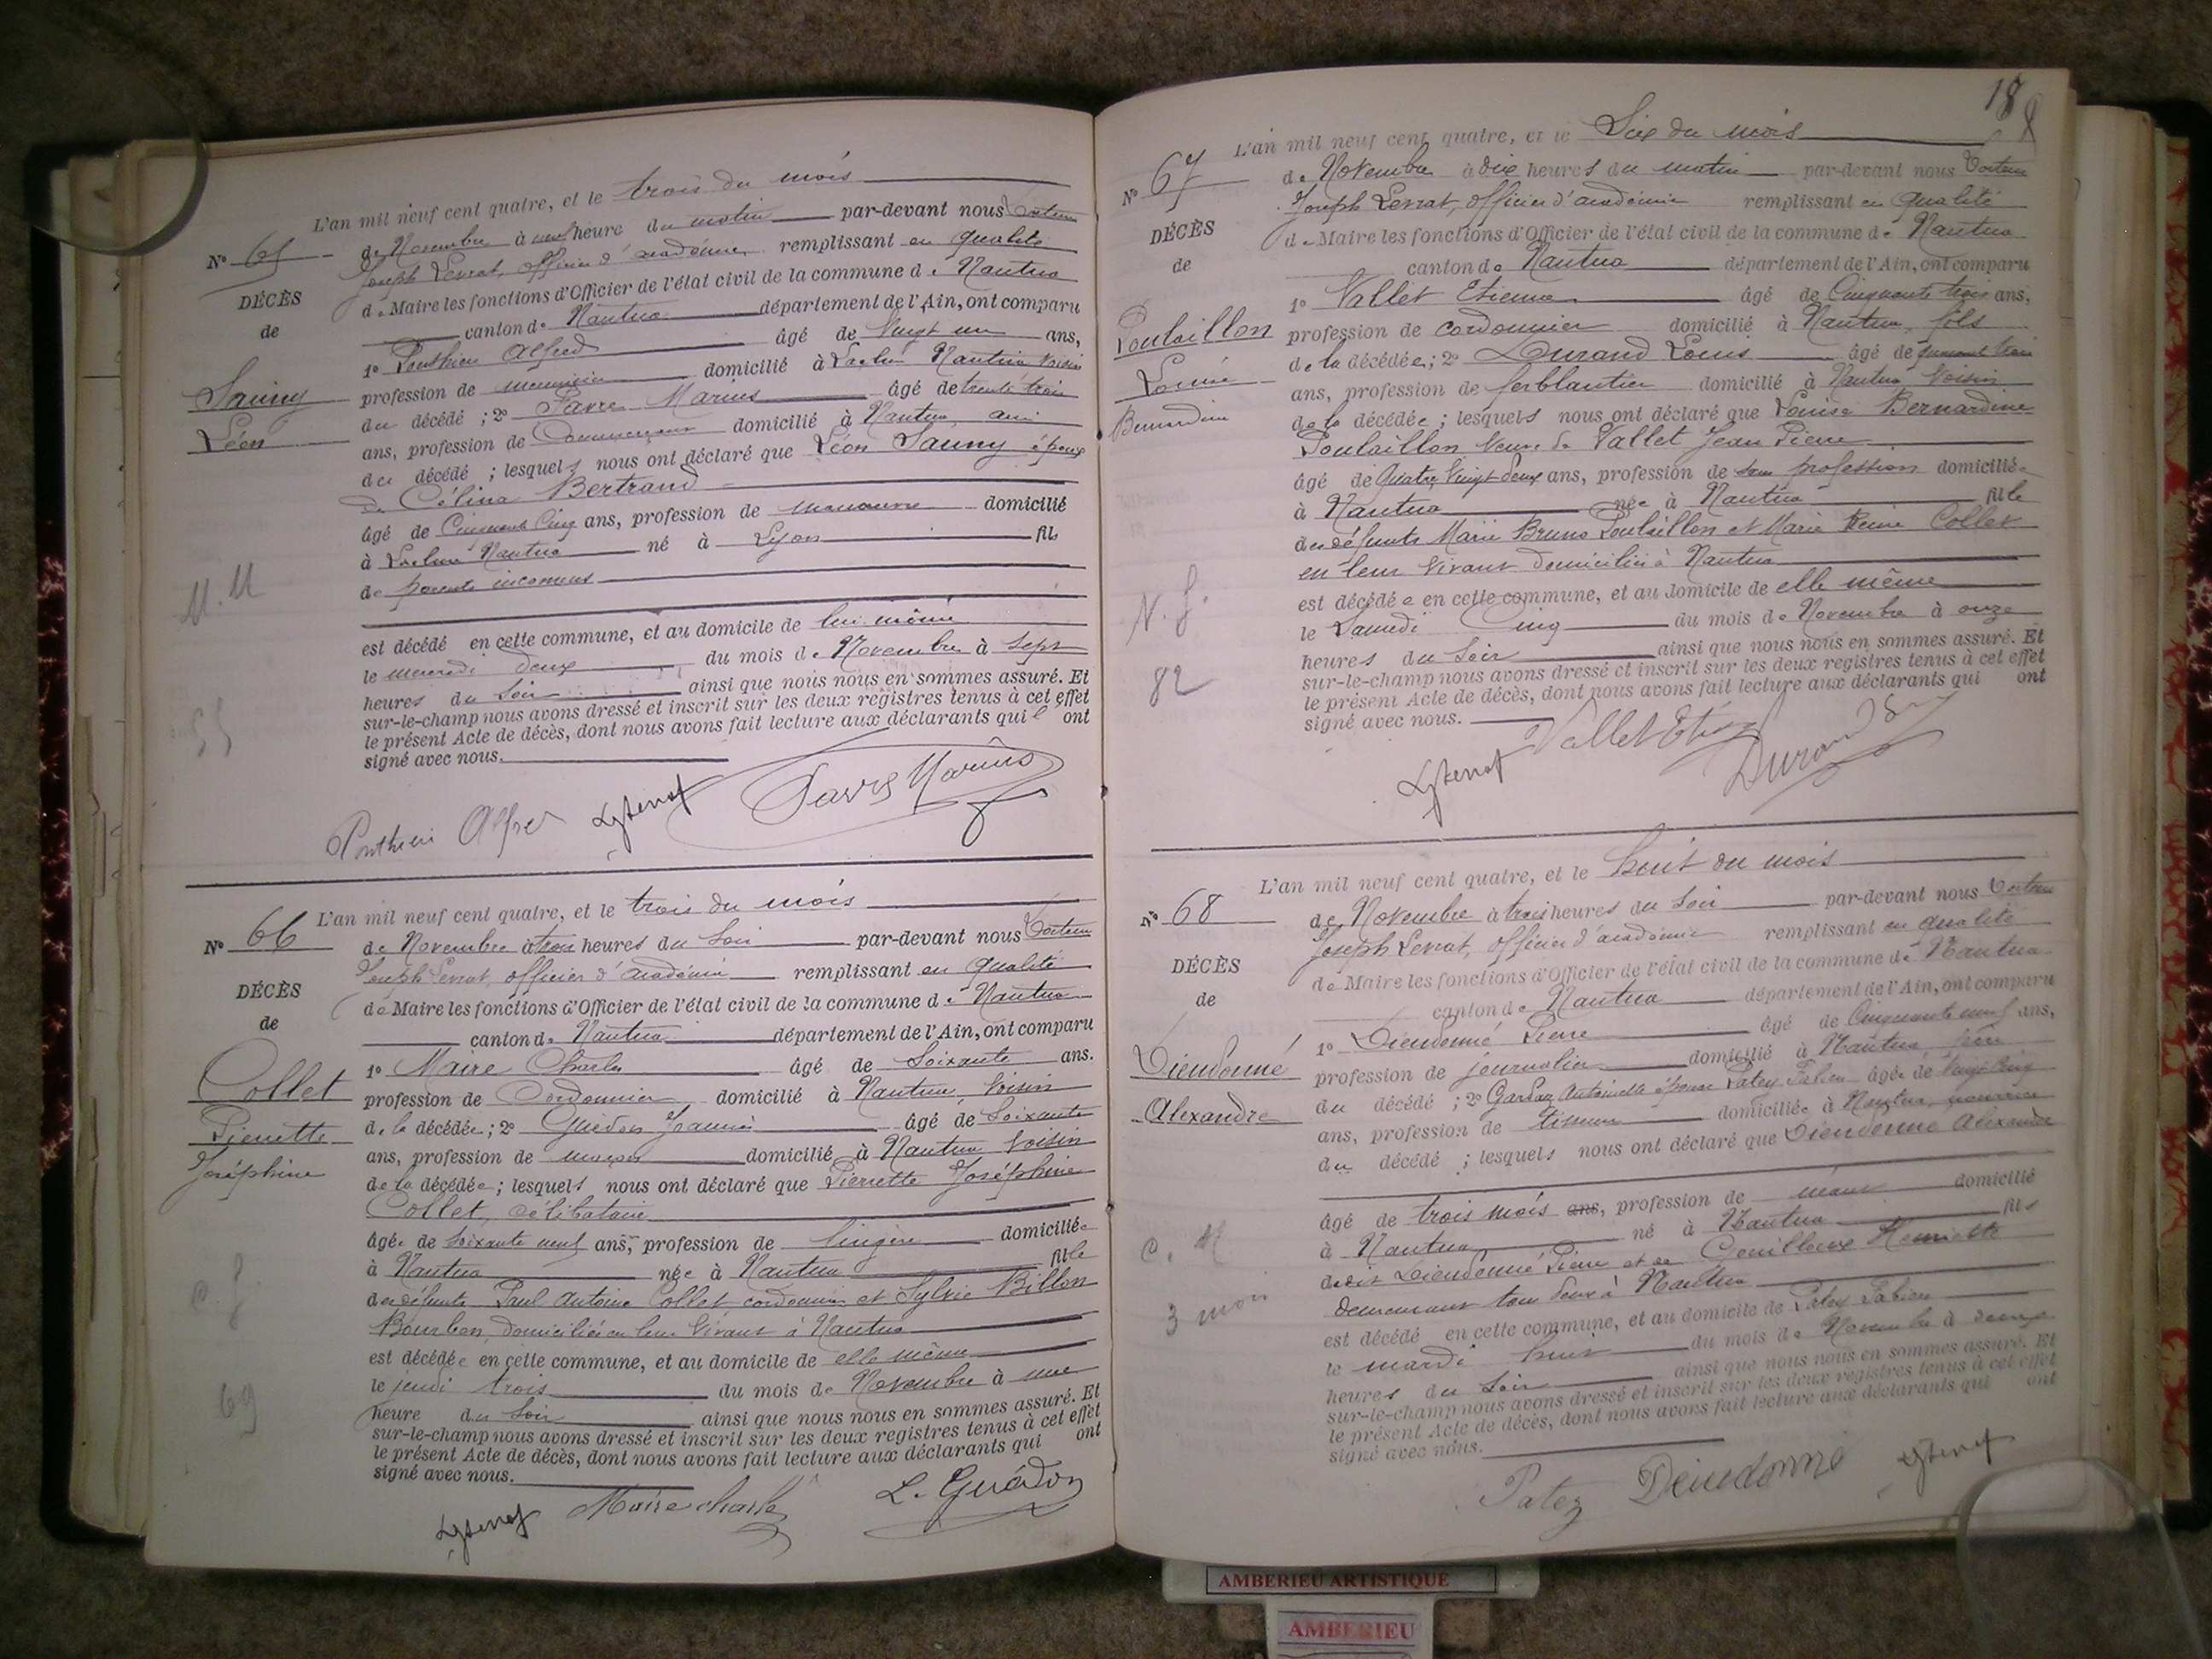 L'an mil neuf cent quatre, et le trois du mois
de Novembre à neuf heure du matin par-devant nous
Joseph Levrat, officier d'académie remplissant en qualité
de Maire les fonctions d'Officier de l'état civil de la commune de Nantua
canton de Nantua département de l'Ain, ont comparu
1° Ponthieu Alfred âgé de Vingt un ans,
profession de menuisier domicilié à Nantua voisin
du décédé ; 2° Favre Marius âgé de trente trois
ans, profession de domicilié à Nantua, ami
du décédé ; lesquels nous ont déclaré que Léon Sauny époux
de Célina Bertrand
âgé de Cinquante Cinq ans, profession de manœuvre domicilié
à Nantua né à Lyon fils
de parents inconnus
est décédé en cette commune, et au domicile de lui même
le mercredi deux du mois de Novembre à sept
heures du soir ainsi que nous nous en sommes assuré. Et
sur-le-champ nous avons dressé et inscrit sur les deux registres tenus à cet effet
le présent Acte de décès, dont nous avons fait lecture aux déclarants qui ont
signé avec nous.
N° 65
DÉCÈS
de
Sauny
Léon
M. M
55
Ponthieu Alfred Favre Marius
L'an mil neuf cent quatre, et le trois du mois
de Novembre à trois heures du soir par-devant nous
Joseph Levrat, officier d'académie remplissant en qualité
de Maire les fonctions d'Officier de l'état civil de la commune de Nantua
canton de Nantua département de l'Ain, ont comparu
1° Maire Charles âgé de Soixante ans.
profession de Cordonnier domicilié à Nantua, Voisin
de la décédée ; 2° Guédon âgé de Soixante
ans, profession de maçon domicilié à Nantua Voisin
de la décédée ; lesquels nous ont déclaré que Pierrette Joséphine
Collet, célibataire
âgée de soixante neuf ans, profession de lingère domiciliée
à Nantua née à Nantua fille
des défunts Paul Antoine Collet, cordonnier et Sylvie Billon
Bourbon, domiciliés en leur Vivant à Nantua
est décédée en cette commune, et au domicile de elle même
le jeudi trois du mois de Novembre à une
heure du soir ainsi que nous nous en sommes assuré. Et
sur-le-champ nous avons dressé et inscrit sur les deux registres tenus à cet effet
le présent Acte de décès, dont nous avons fait lecture aux déclarants qui ont
signé avec nous.
N° 66
DÉCÈS
de
Collet
Pierrette
Joséphine
C. f.
69
Maire charle L. Guédon
18
L'an mil neuf cent quatre, et le Six du mois
de Novembre à dix heures du matin par-devant nous
Joseph Levrat, officier d'académie remplissant en qualité
de Maire les fonctions d'Officier de l'état civil de la commune de Nantua
canton de Nantua département de l'Ain, ont comparu
1° Vallet Etienne âgé de Cinquante trois ans,
profession de cordonnier domicilié à Nantua, fils
de la décédée ; 2° Durand Louis âgé de
ans, profession de ferblantier domicilié à Nantua Voisin
de la décédée ; lesquels nous ont déclaré que Louise Bernardine
Poulaillon Veuve de Vallet Jean Pierre
âgé de Quatre Vingt deux ans, profession de sans profession domiciliée
à Nantua née à Nantua fille
des défunts Marie Bruno Poulaillon et Marie Reine Collet
en leur Vivant domiciliés à Nantua
est décédée en cette commune, et au domicile de elle même
le Samedi Cinq du mois de Novembre à onze
heures du soir ainsi que nous nous en sommes assuré. Et
sur-le-champ nous avons dressé et inscrit sur les deux registres tenus à cet effet
le présent Acte de décès, dont nous avons fait lecture aux déclarants qui ont
signé avec nous.
N° 67
DÉCÈS
de
Poulaillon
Louise
Bernardine
V. f.
82
Vallet Durand
L'an mil neuf cent quatre, et le huit du mois
de Novembre à trois heures du soir par-devant nous
Joseph Levrat, officier d'académie remplissant en qualité
de Maire les fonctions d'Officier de l'état civil de la commune de Nantua
canton de Nantua département de l'Ain, ont comparu
1° Dieudonné Pierre âgé de Cinquante neuf ans,
profession de journalier domicilié à Nantua, père
du décédé ; 2° Antoinette épouse Patey Fabien âgée de Vingt Cinq
ans, profession de tisseuse domiciliée à Nantua, nourrice
du décédé ; lesquels nous ont déclaré que Dieudonné Alexandre
âgé de trois mois ans, profession de néant domicilié
à Nantua né à Nantua fils
dudit Dieudonné Pierre et de Henriette
demeurant tous deux à Nantua
est décédé en cette commune, et au domicile de Patey Fabien
le mardi huit du mois de Novembre à
heures du soir ainsi que nous nous en sommes assuré. Et
sur-le-champ nous avons dressé et inscrit sur les deux registres tenus à cet effet
le présent Acte de décès, dont nous avons fait lecture aux déclarants qui ont
signé avec nous.
N° 68
DÉCÈS
de
Dieudonné
Alexandre
C. M
3 mois
Patez Dieudonné
AMBERIEU ARTISTIQUE
AMBERIEU